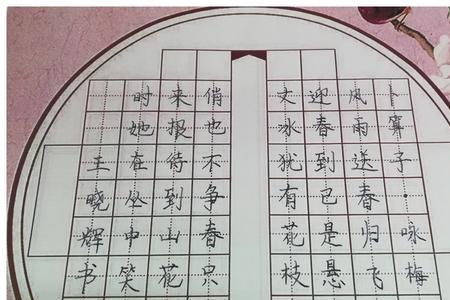 卜算子·咏梅
风雨送春归飞
迎春到已是悬
丈冰犹有花枝
俏也不争春只
来报待到山花
时她在丛中笑
王晓辉书